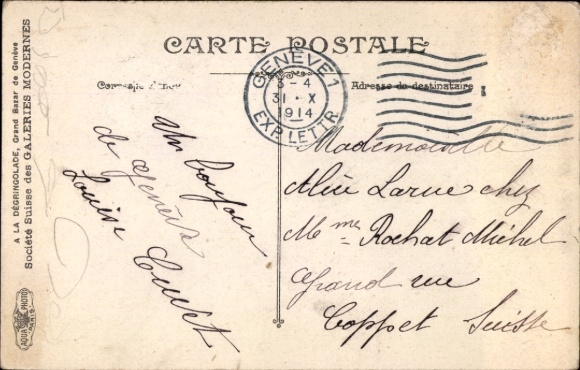 CARTE POSTALE
GENÈVE 1
3-4
31 · X
1914
EXP. LETTR
Adresse du destinataire
A LA DÉGRINGOLADE, Grand Bazar de Genève
Société Suisse des GALERIES MODERNES
AQUA PHOTO
PARIS
Un bonjour
de Genève
Louise
Mademoiselle
Alice Larue chez
Mme Rochat Michel
Grand rue
Coppet Suisse